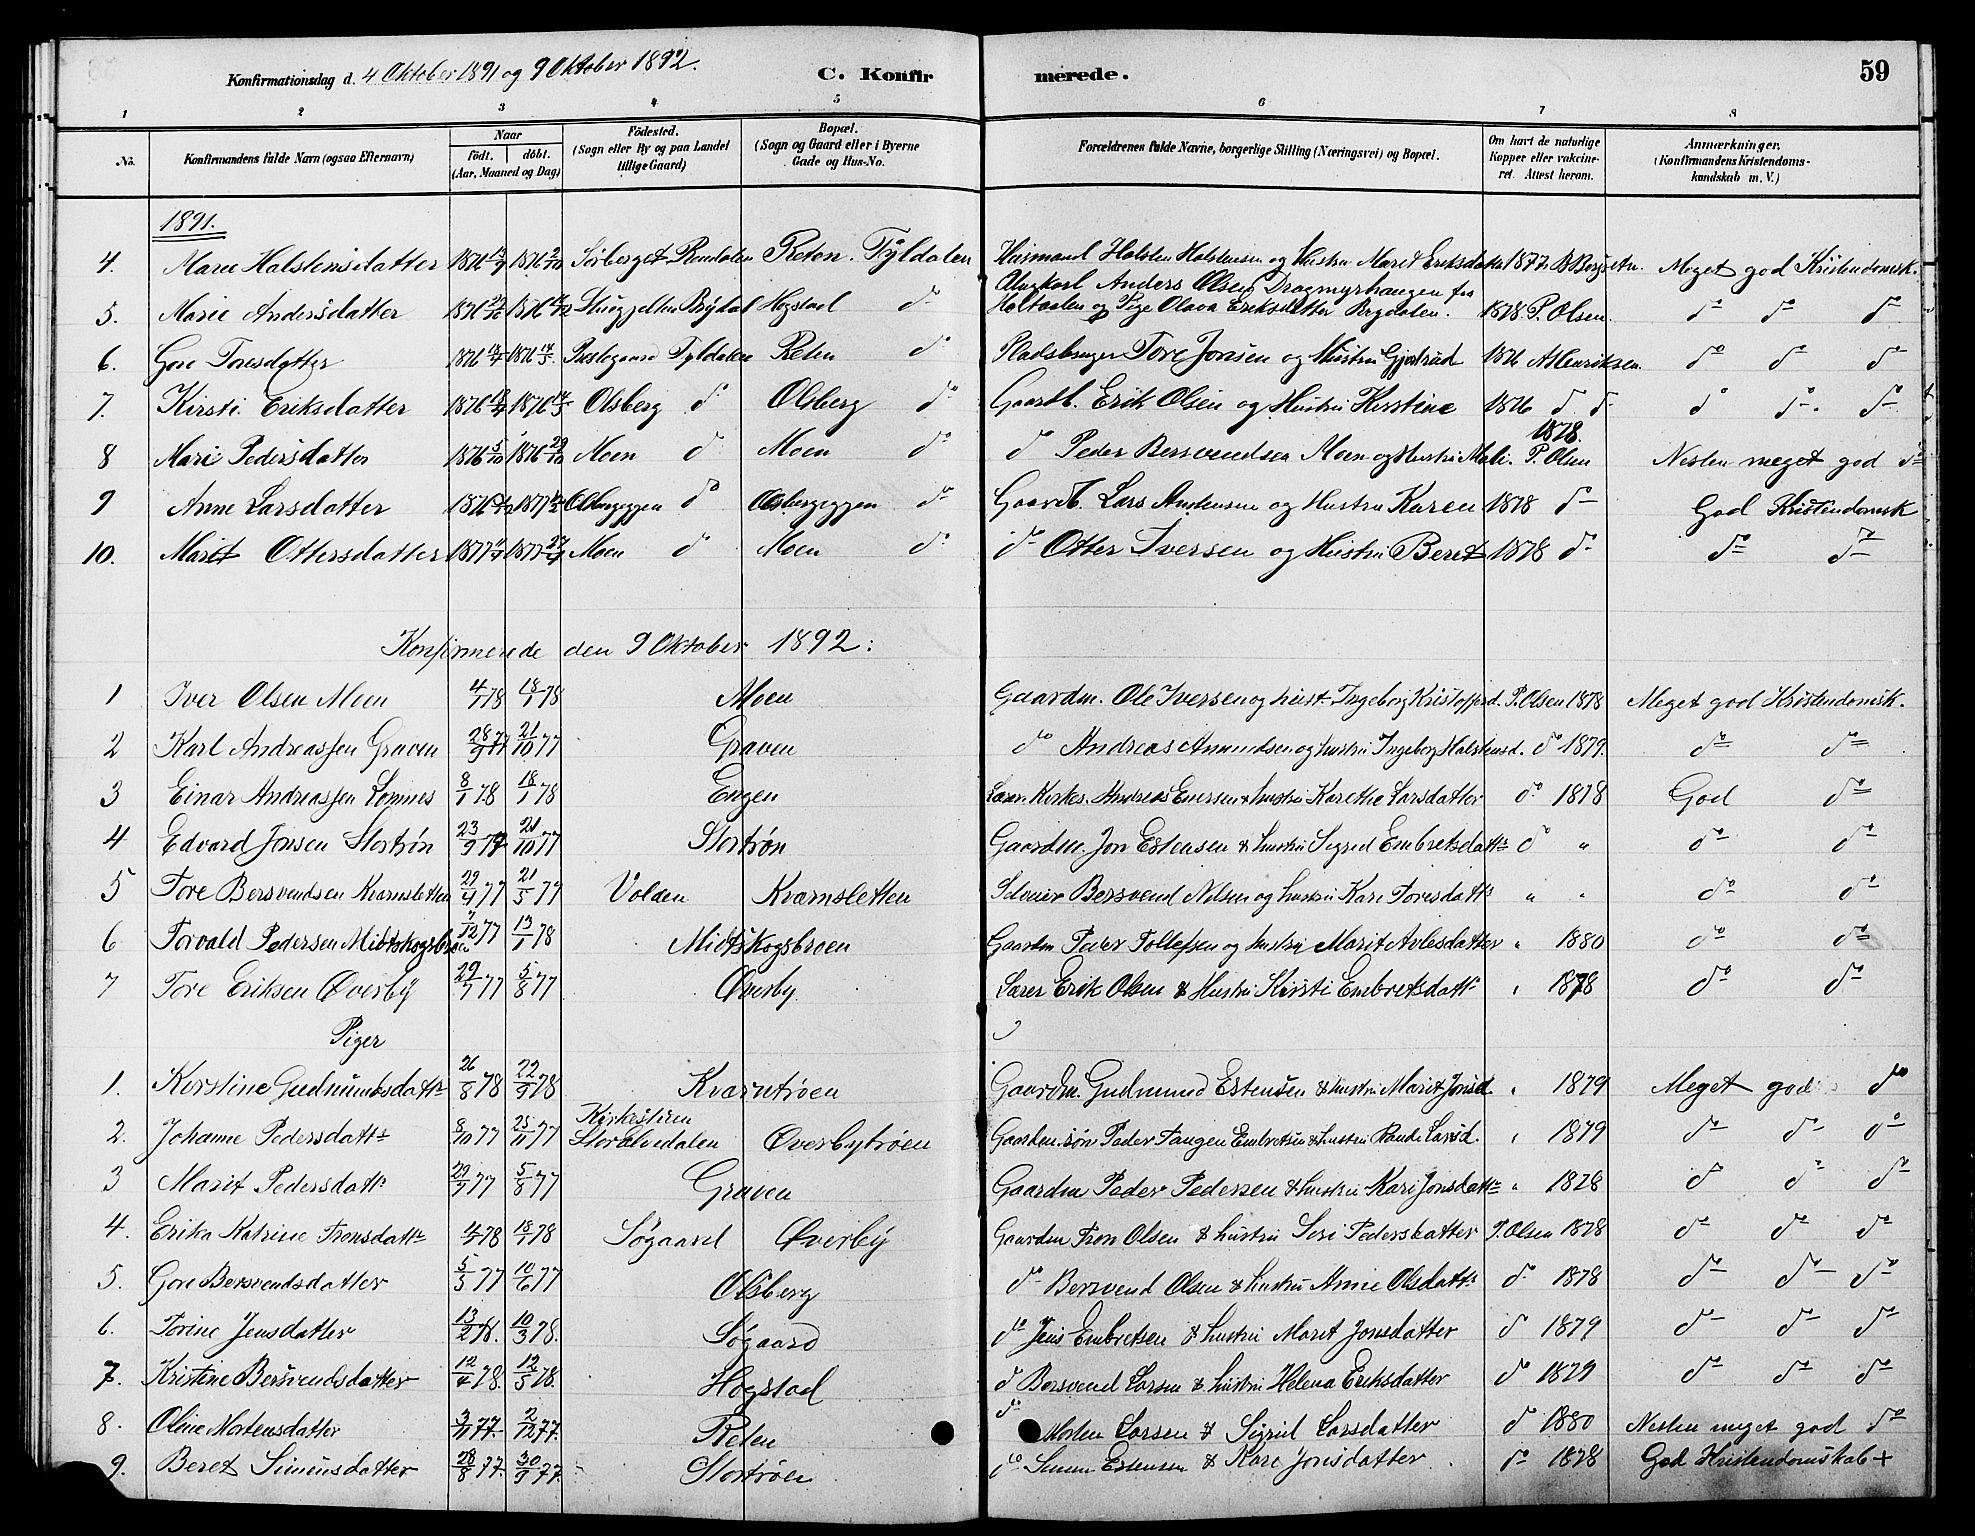 Konfirmationsdag d. 4 Oktober 1891 og 9 Oktober 1892.
C. Konfirmerede.
59
1 2 3 4 5 6 7 8
No.
Konfirmandens fulde Navn (ogsaa Efternavn)
Naar födt. döbt. (Aar, Maaned og Dag)
Födested. (Sogn eller By og paa Landet tillige Gaard)
Bopæl. (Sogn og Gaard eller i Byerne Gade og Hus-No.
Forældrenes fulde Navne, borgerlige Stilling (Næringsvei) og Bopæl.
Om havt de naturlige Kopper eller vakcineret. Attest herom.
Anmærkninger. (Konfirmandens Kristendomskundskab m. V.)
1891.
4. Maree Halstensdatter 1876 1876 Sörberget Rendalen Reten. Tyldalen Husmand Halsten Halstensen og Hustru Marit Eriksdatter 1877 Meget god Kristendomsk.
5. Marie Andersdatter 1876 1876 Brydal Hogstad do Ungkarl Anders Olsen Dragmyrhaugen fra
Holtaalen og Pige Olava Eriksdatter Brydalen. 1878 P. Olsen. do do do
6. Gore Toresdatter 1876 1876 Prestegaard Tyldalen Reten do Pladsbruger Tore Jonsen og Hustru Gjertrud 1876 A Henriksen. do do do
7. Kirsti Eriksdatter 1876 1876 Olsberg do Olsberg do Gaardb. Erik Olsen og Hustru Kirstine 1876 do do do do do
8 Mari Pedersdatter 1876 5/10 1876 29/10 Moen do Moen do do Peder Bersvendsen Moen og Hustru Mali. 1878. P. Olsen Nesten meget god do
9 Anne Larsdatter 1876 1877 Olsbergeggen do Olsbergeggen do Gaardb. Lars Andersen og Hustru Karen 1878 do God Kristendomsk
10. Marit Ottersdatter 1877 1877 Moen do Moen do do Otter Iversen og Hustru Beret 1878 do do do
Konfirmerede den 9 Oktober 1892:
1 Iver Olsen Moen 4/1 78 18/1 78 Moen Gaardm. Ole Iversen og hust. Ingeborg Kristofferd. P. Olsen 1878 Meget god Kristendomsk.
2 Karl Andreassen Graven 28/9 77 21/10 77 Graven do Andreas Amundsen og hustru Ingeborg Halstensd. do 1879. do do
3 Einar Andreassen Lomnes 8/1 78 18/1 78 Engen Lærer. Kirkes. Andreas Enersen & hustru Karethe Larsdatter do 1878 God do
4 Edvard Jonsen Stortrøn 23/9 77 21/10 77 Stortrøn Gaardm. Jon Estensen & hustru Sigrid Embretsdattr do " do do
5 Tore Bersvendsen Kvarnsletten 29/4 77 21/5 77 Volden Kvarnsletten Selveier Bersvend Nilsen og hustru Kari Toresdattr " " do do
6 Torvald Pedersen Midtskogsbroen 7/12 77 13/1 78 Midtskogsbroen Gaardm Peder Tollefsen og hustru Marit Avlesdatter " 1880 do do
7 Tore Eriksen Øverby 29/7 77 5/8 77 Øverby Lærer Erik Olsen & Hustru Kirsti Embretsdattr " 1878 do do
Piger
1. Kirstine Gudmundsdattr 26/8 78 22/9 78 Kvarntrøen Gaardm. Gudmund Estensen & hustru Marit Jonsd. " 1879 Meget god do
2. Johanne Pedersdattr 8/10 77 25/11 77 Kirkestuen
Storelvedalen Øverbytrøen Gaardm. søn Peder Fangen Embretsen & hustru Rande Larsd. " 1879 do do do
3 Marit Pedersdattr 29/7 77 5/8 77 Graven Gaardm Peder Pedersen & hustru Kari Jonsdattr " 1878 do do do
4. Erika Katrine Tronsdattr 4/1 78 18/1 78 Søgaard Øverby Gaardm Tron Olsen & hustru Siri Pedersdatter P. Olsen 1878 do do do
5. Gore Bersvendsdatter 5/5 77 10/6 77 Olsberg do Bersvend Olsen & hustru Anne Olsdattr do 1878 do do do
6. Torine Jensdatter 13/2 78. 10/3 78. Søgaard do Jens Embretsen & hustru Marit Jonsdatter do 1879 do do do
7. Kristine Bersvendsdatter 12/4 78. 12/5 78. Hogstad do Bersvend Larsen & hustru Helena Eriksdatter do 1879 do do do
8. Oline Mortensdatter 3/11 77. 2/12 77. Reten do Morten Larsen & Sigrid Larsdatter do 1880 Nesten meget god do
9. Beret Simensdatter 28/8 77. 30/9 77. Stortrøen do Simen Estensen & Kari Jonsdatter do 1878 God Kristendomskab +